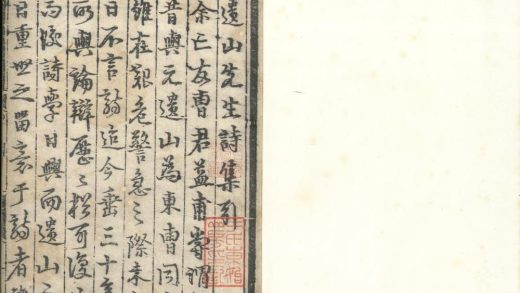 遺山先生詩集引
余亡友曹君益甫嘗謂
昔與元遺山為東曹同
雖在艱危警急之際未
日不言詩迨今垂三十年
所與論辯歷々猶可復
而後詩學日興而遺山之
日重世之留意于詩者